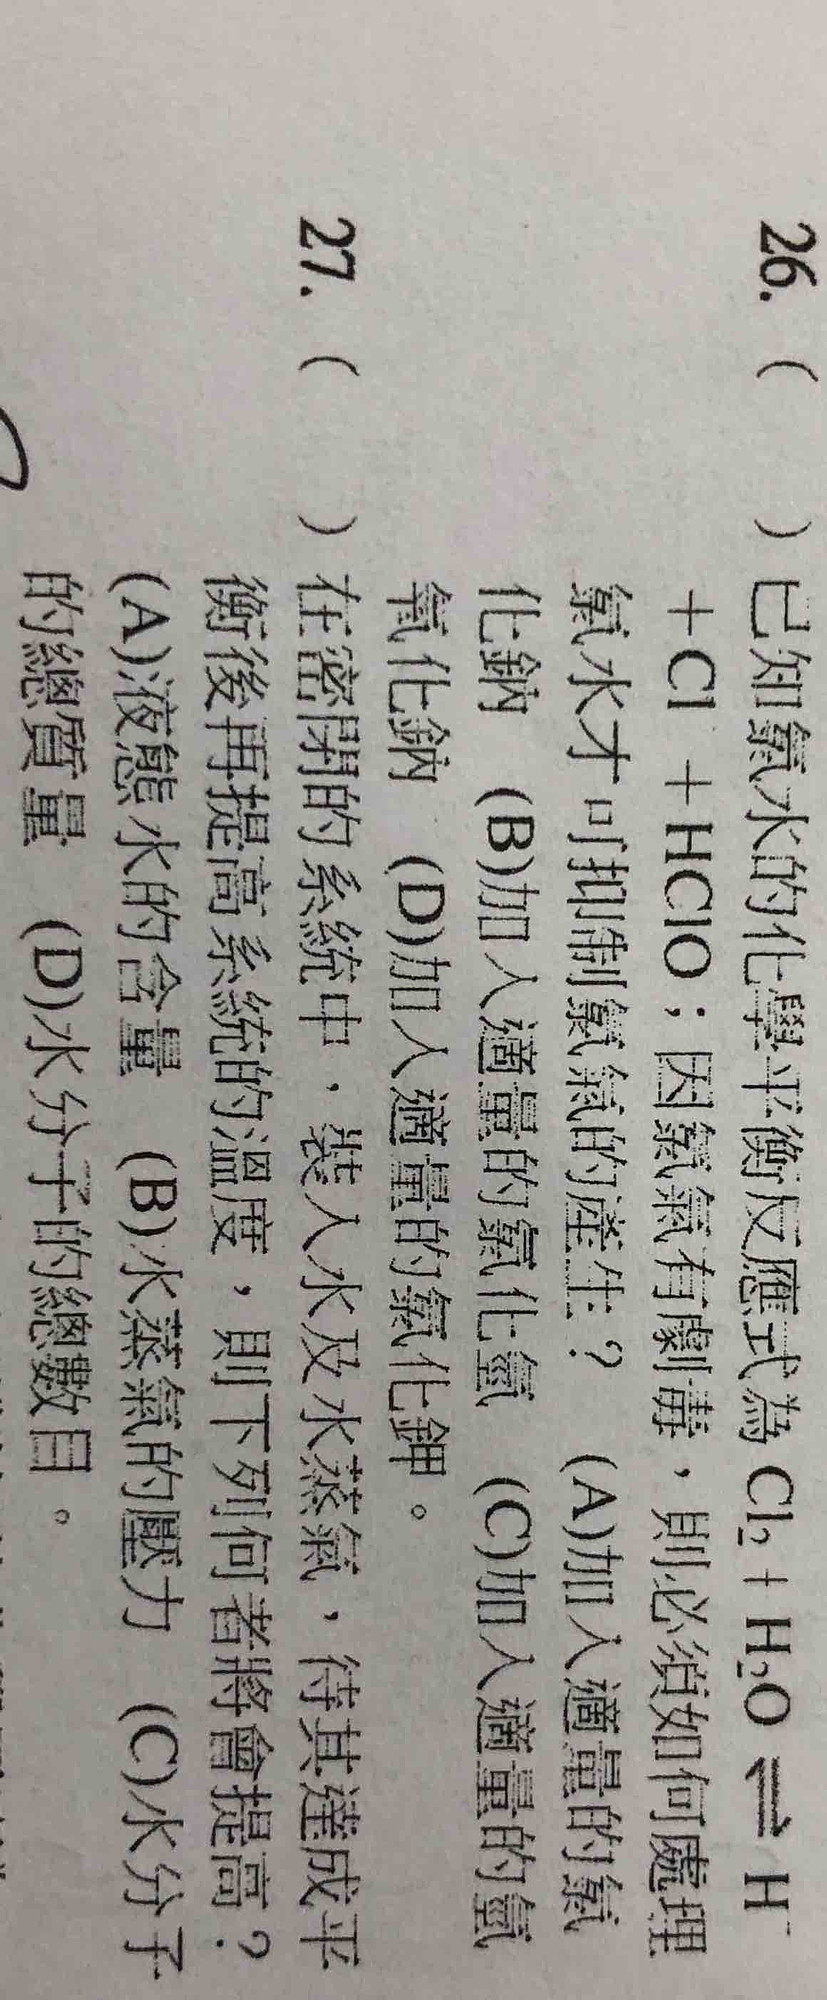 26. (　) 已知氯水的化學平衡反應式為 Cl₂ + H₂O ⇌ H⁻
＋Cl⁻＋HClO；因氯氣有劇毒，則必須如何處理
氯水才可抑制氯氣的產生？ (A)加入適量的氯
化鈉 (B)加入適量的氯化氫 (C)加入適量的氫
氧化鈉 (D)加入適量的氯化鉀。
27. (　) 在密閉的系統中，裝入水及水蒸氣，待其達成平
衡後再提高系統的溫度，則下列何者將會提高？
(A)液態水的含量 (B)水蒸氣的壓力 (C)水分子
的總質量 (D)水分子的總數目。